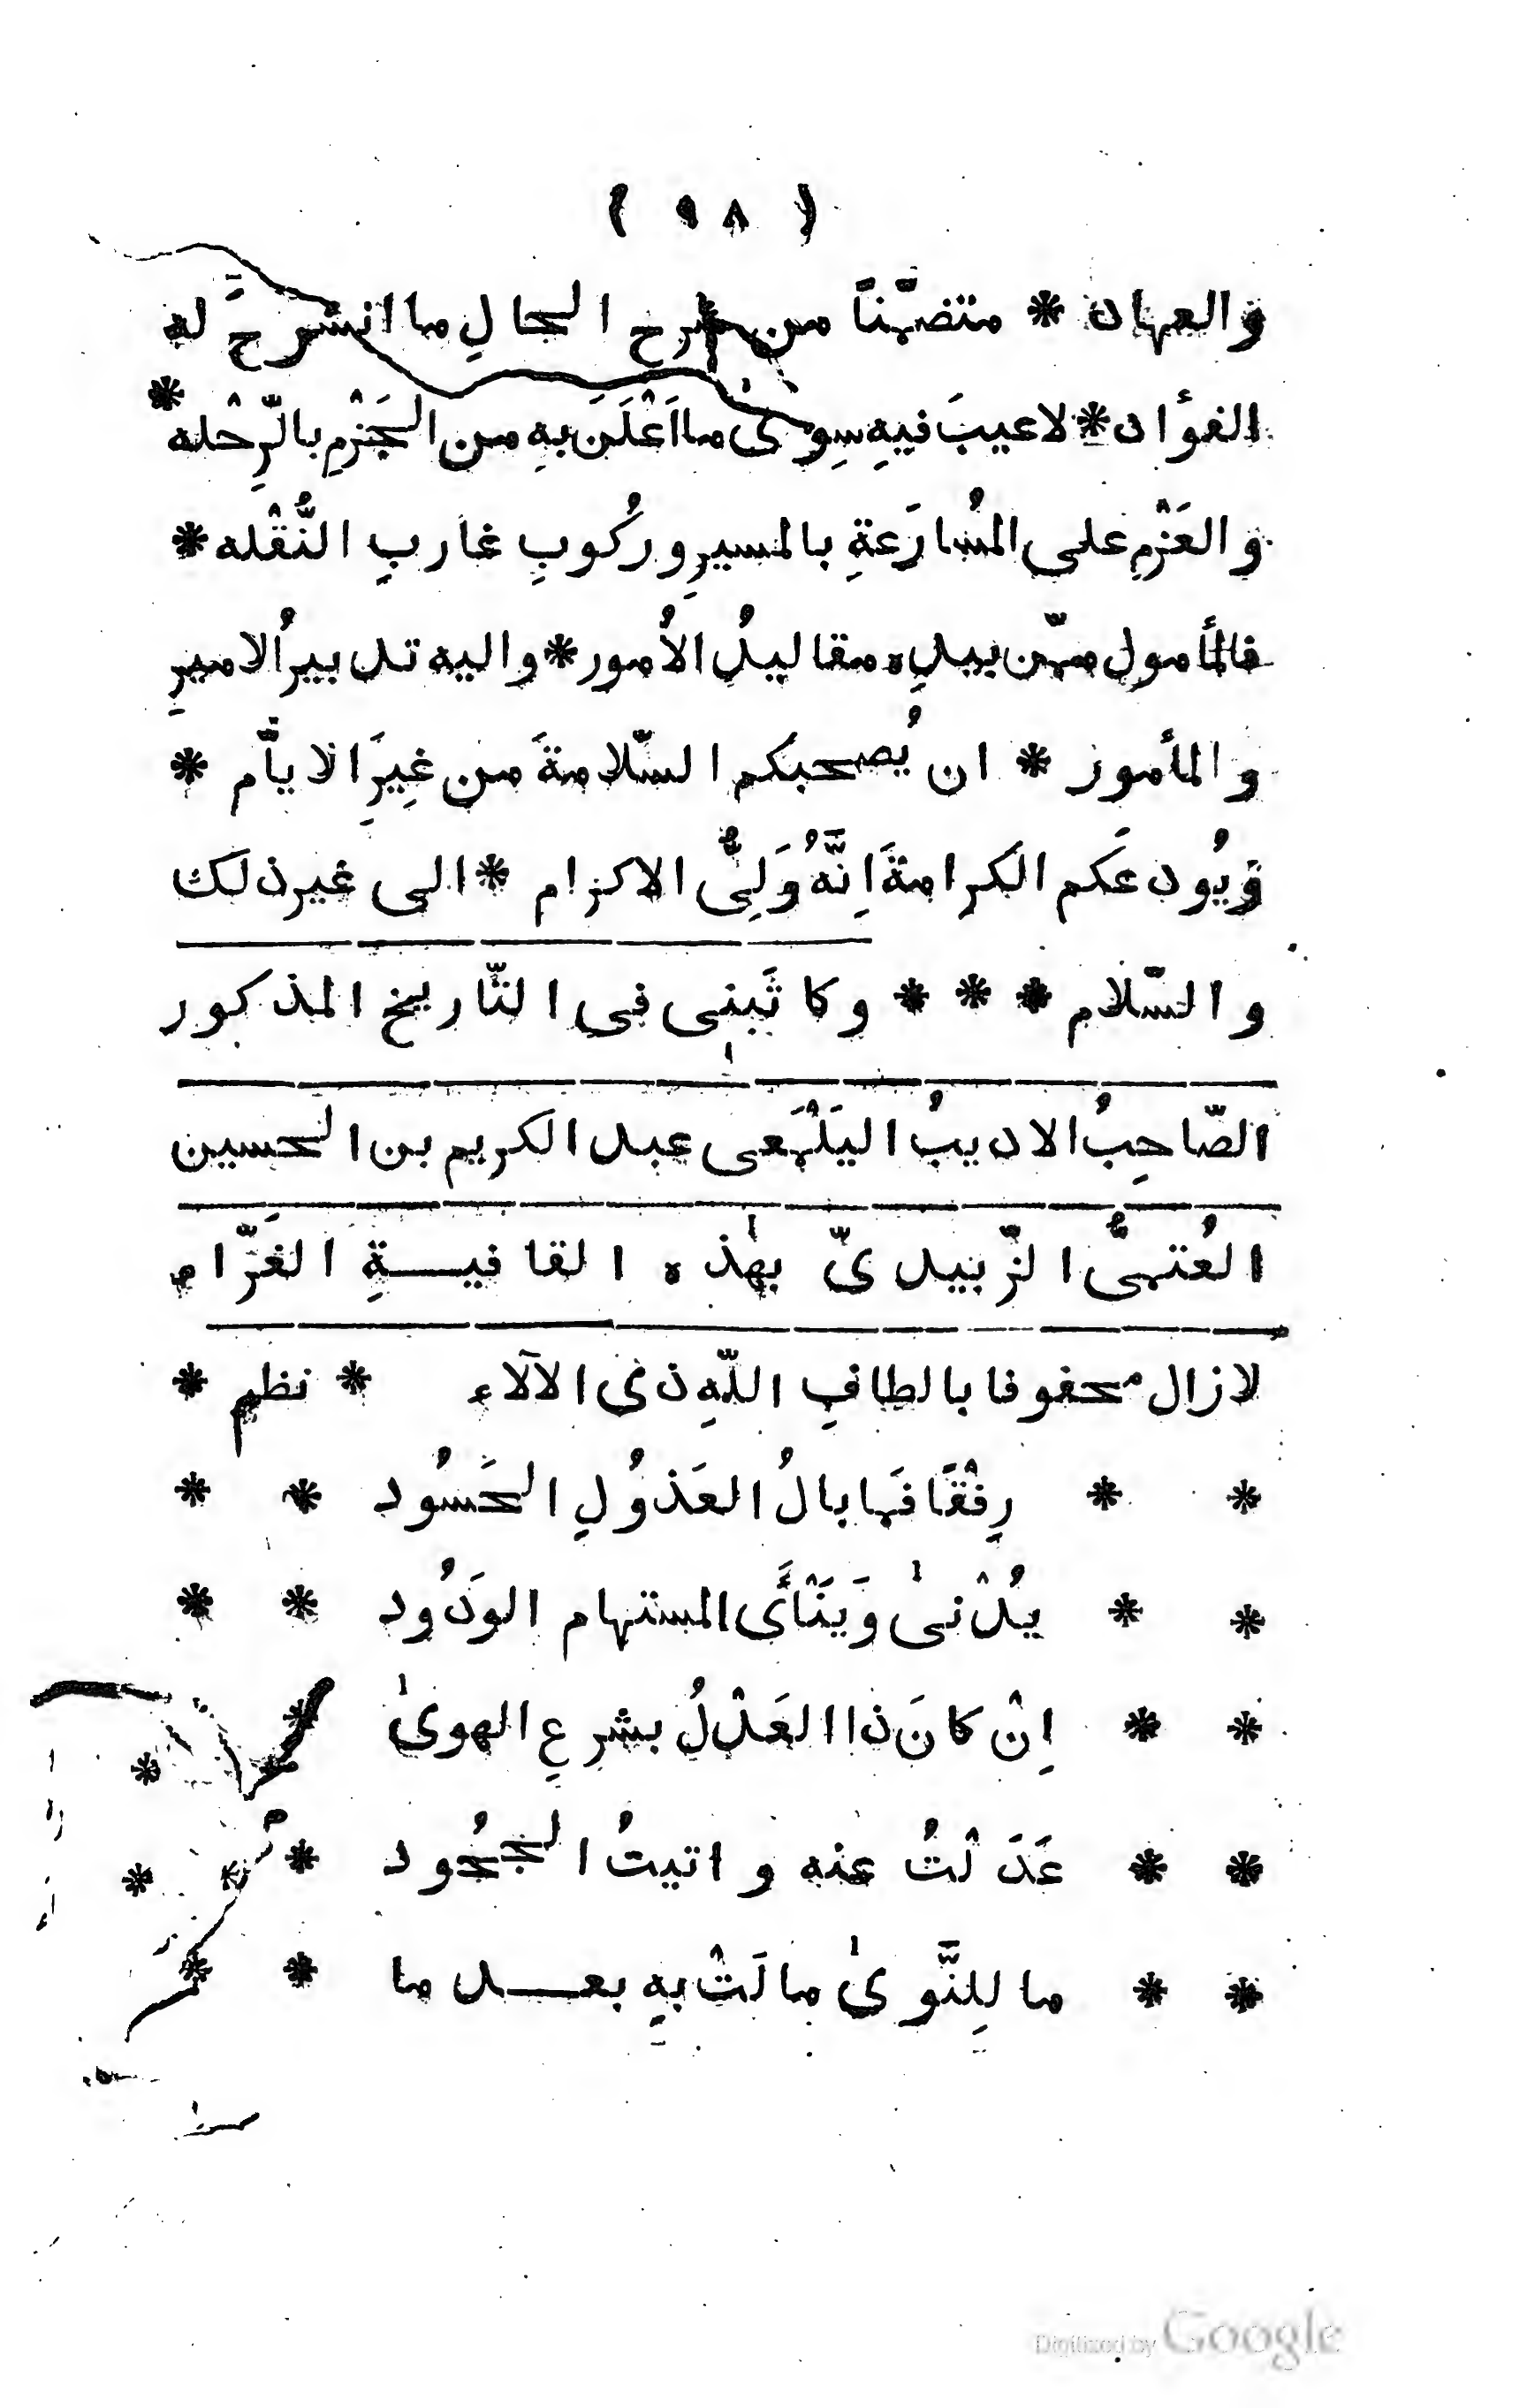 ( ٩٨ )
والعهاد * متضمّنًا من شرح الحالِ ما انشرحَ له
الفوٴاد * لاعيبَ فيهِ سِوىٰ ما اَعْلَنَ بهِ من الجَزْمِ بالرِّحْله *
والعَزْمِ على المُسارَعةِ بالمسيرِ ورُكُوبِ غاربِ النُّقْله *
فالمأمول ممّن بيدِه مقاليدُ الأمورِ * واليه تدبيرُ الاميرِ
والمأمور * ان يُصحبكم السّلامةَ من غِيَرِ الايّام *
ويُودعَكم الكرامةَ اِنَّهُ وَلِىُّ الاكرام * الى غير ذلك
والسّلام * * * وكاتَبنى فى التّاريخ المذكور
الصّاحِبُ الاديبُ اليَلْمَعى عبد الكريم بن الحسين
العُتمىُّ الزّبيدىّ بهٰذه القافيــةِ الغَرَّاء
لازال محفوفا بالطافِ اللّهِ ذى الآلاء * نظم *
* * رِفْقًا فَما بالُ العَذُولِ الحَسُود * *
* * يُدْنىٰ وَيَنْأَى المستهام الوَدُود * *
* * اِنْ كانَ ذا العَدْلُ بشرعِ الهوىٰ * *
* * عَدَلْتُ عنه واتيتُ الجُحُود * *
* * ما لِلنَّوىٰ مالَتْ بهِ بعــد ما * *
Digitized by Google